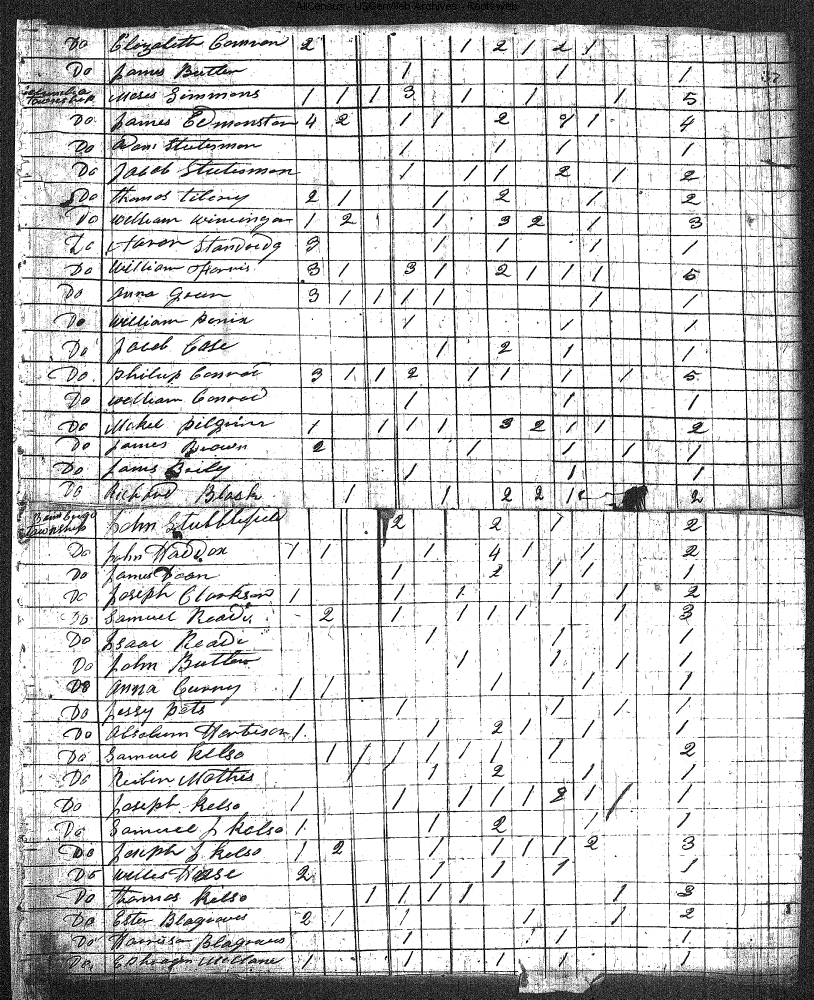 AllCensus - USGenWeb Archives - Rootsweb
Do Elizabeth Cannon 2 1 2 1 2 1
Do James Butler 1 1 1
Township Moses Simmons 1 1 1 3 1 1 1 5
Do James Edmonston 4 2 1 1 2 1 4
Do Stutesman 1 1 1 1
Do Jacob Stutesman 1 1 1 2 1 2
Do Thomas 2 1 1 2 1 2
Do William 1 2 1 3 2 1 3
Do Aaron 3 1 1 1 1
Do William 3 1 3 1 2 1 1 1 5
Do Anna Green 3 1 1 1 1 1 1
Do William 1 1 1
Do Jacob Case 1 2 1 1
Do Philip Conrad 3 1 1 2 1 1 1 1 5
Do William Conrad 1 1 1
Do Mikel Pilgrim 1 1 1 1 3 2 1 1 2
Do James Brown 2 1 1 1 1
Do James Baily 1 1 1
Do Richard Black 1 1 2 2 1 2
Township John Stubblefield 2 2 1 2
Do John Haddox 1 1 1 4 1 1 2
Do James 1 2 1 1 1
Do Joseph Clarkson 1 1 1 1 1 2
Do Samuel Reade 2 1 1 1 1 1 3
Do Isaac Reade 1 1 1
Do John Butler 1 1 1 1
Do Anna Curry 1 1 1 1 1
Do Jessy 1 1 1 1
Do Absalum Harbison 1 1 2 1 1 1
Do Samuel Kelso 1 1 1 1 1 1 1 2
Do Reubin Mathis 1 2 1 1
Do Joseph Kelso 1 1 1 1 1 2 1 1 1
Do Samuel J Kelso 1 1 2 1 1
Do Joseph J Kelso 1 2 1 1 1 1 2 3
Do 2 1 1 1 1
Do Thomas Kelso 1 1 1 1 1 3
Do Ester Blagraves 2 1 1 1 1 2
Do Harrison Blagraves 1 1 1 1
Do 1 1 1 1 1